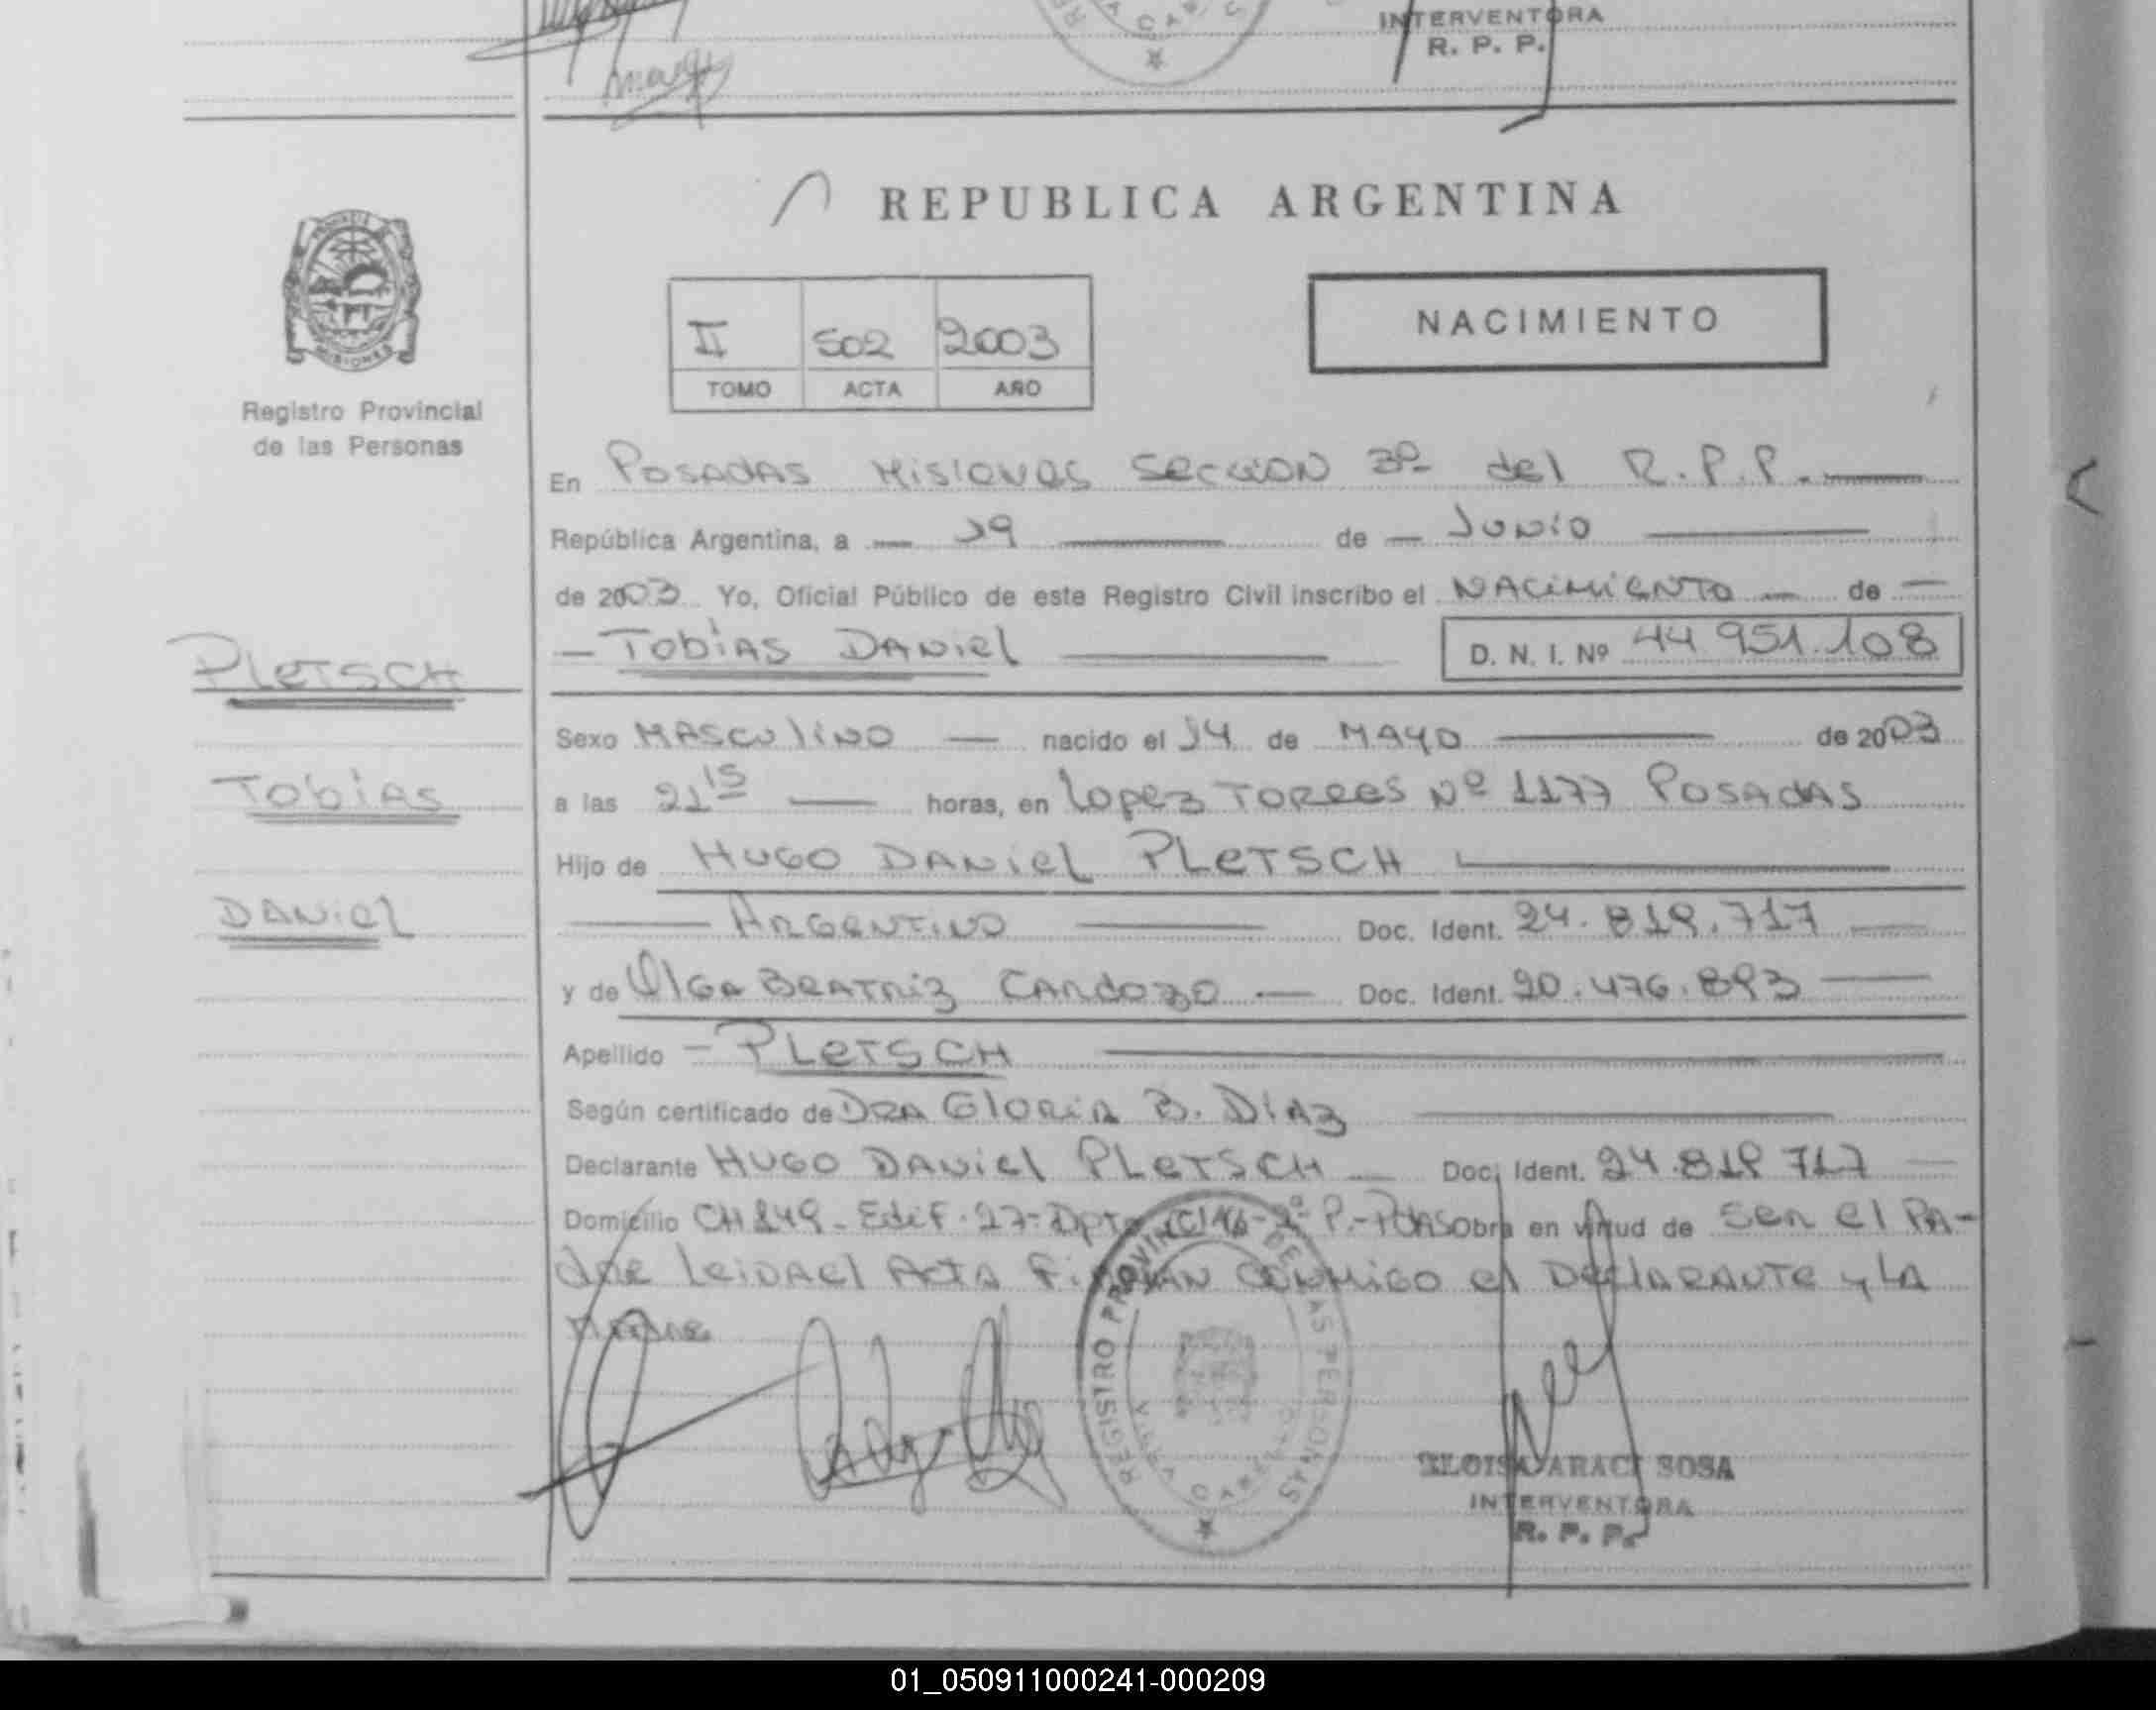 INTERVENTORA
R. P. P.
REPUBLICA ARGENTINA
MISIONES
Registro Provincial
de las Personas
II 502 2003
TOMO ACTA AÑO
NACIMIENTO
En POSADAS MISIONES SECCION 3º del R.P.P.
República Argentina, a 19 de JUNIO
de 2003 Yo, Oficial Público de este Registro Civil inscribo el NACIMIENTO de
TOBIAS DANIEL D. N. I. Nº 44 951.108
PLETSCH
TOBIAS
DANIEL
Sexo MASCULINO nacido el 14 de MAYO de 2003
a las 21 15 horas, en LOPEZ TORRES Nº 1177 POSADAS
Hijo de HUGO DANIEL PLETSCH
ARGENTINO Doc. Ident. 24.819.717
y de OLGA BEATRIZ CARDOZO Doc. Ident. 20.476.893
Apellido PLETSCH
Según certificado de DRA GLORIA B. DIAZ
Declarante HUGO DANIEL PLETSCH Doc. Ident. 24.819 717
Domicilio CH 149 - Edif. 27 - Dpto 2º P. - Obra en virtud de SER El PA-
dre leida el Acta FIRMAN CONMIGO el DEClARANTE y LA
MADRE
REGISTRO PROVINCIAL DE LAS PERSONAS
ELOISA ARACI SOSA
INTERVENTORA
R. P. P.
01_050911000241-000209